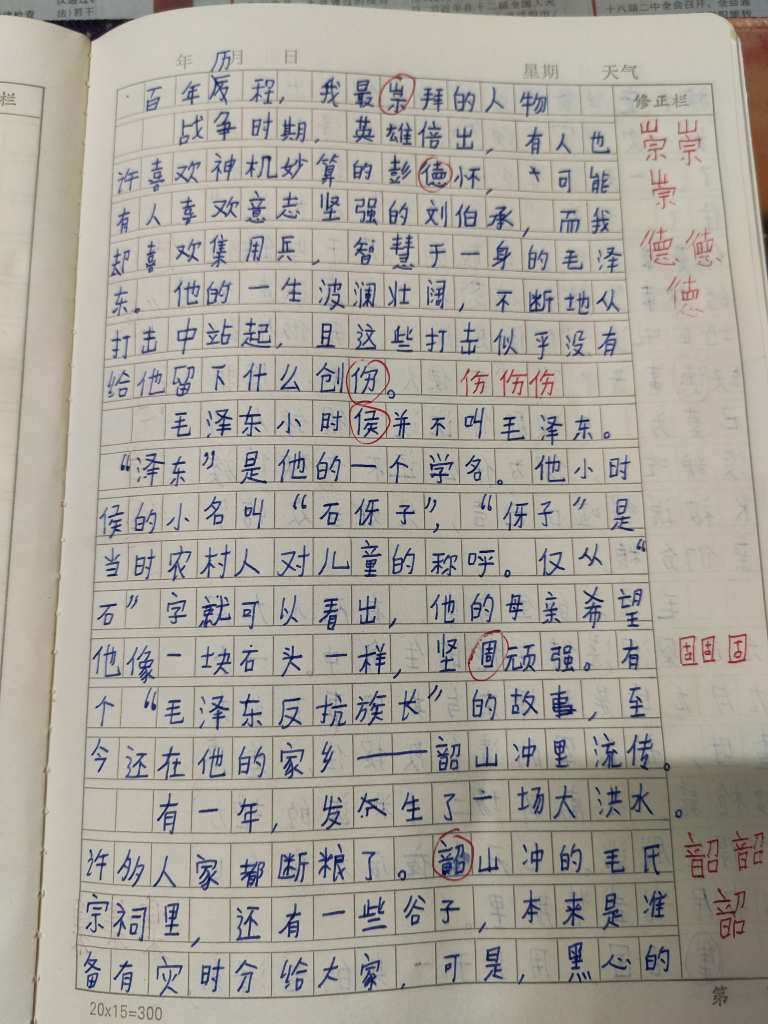 年 月 日 星期 天气
历
百年历程，我最崇拜的人物
修正栏
战争时期，英雄倍出，有人也
许喜欢神机妙算的彭德怀，可能
有人喜欢意志坚强的刘伯承，而我
却喜欢集用兵，智慧于一身的毛泽
东。他的一生波澜壮阔，不断地从
打击中站起，且这些打击似乎没有
给他留下什么创伤。 伤伤伤
毛泽东小时侯并不叫毛泽东。
“泽东”是他的一个学名。他小时
侯的小名叫“石伢子”，“伢子”是
当时农村人对儿童的称呼。仅从“
石”字就可以看出，他的母亲希望
他像一块石头一样，坚固顽强。有
个“毛泽东反抗族长”的故事，至
今还在他的家乡——韶山冲里流传。
有一年，发生了一场大洪水。
许多人家都断粮了。韶山冲的毛氏
宗祠里，还有一些谷子，本来是准
备有灾时分给大家，可是，黑心的
崇崇
崇
德德
德
固固固
韶韶
韶
20x15=300
第
栏